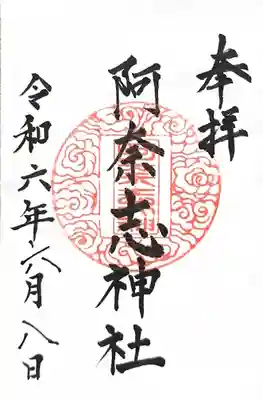 奉拝
阿奈志神社
令和六年六月八日